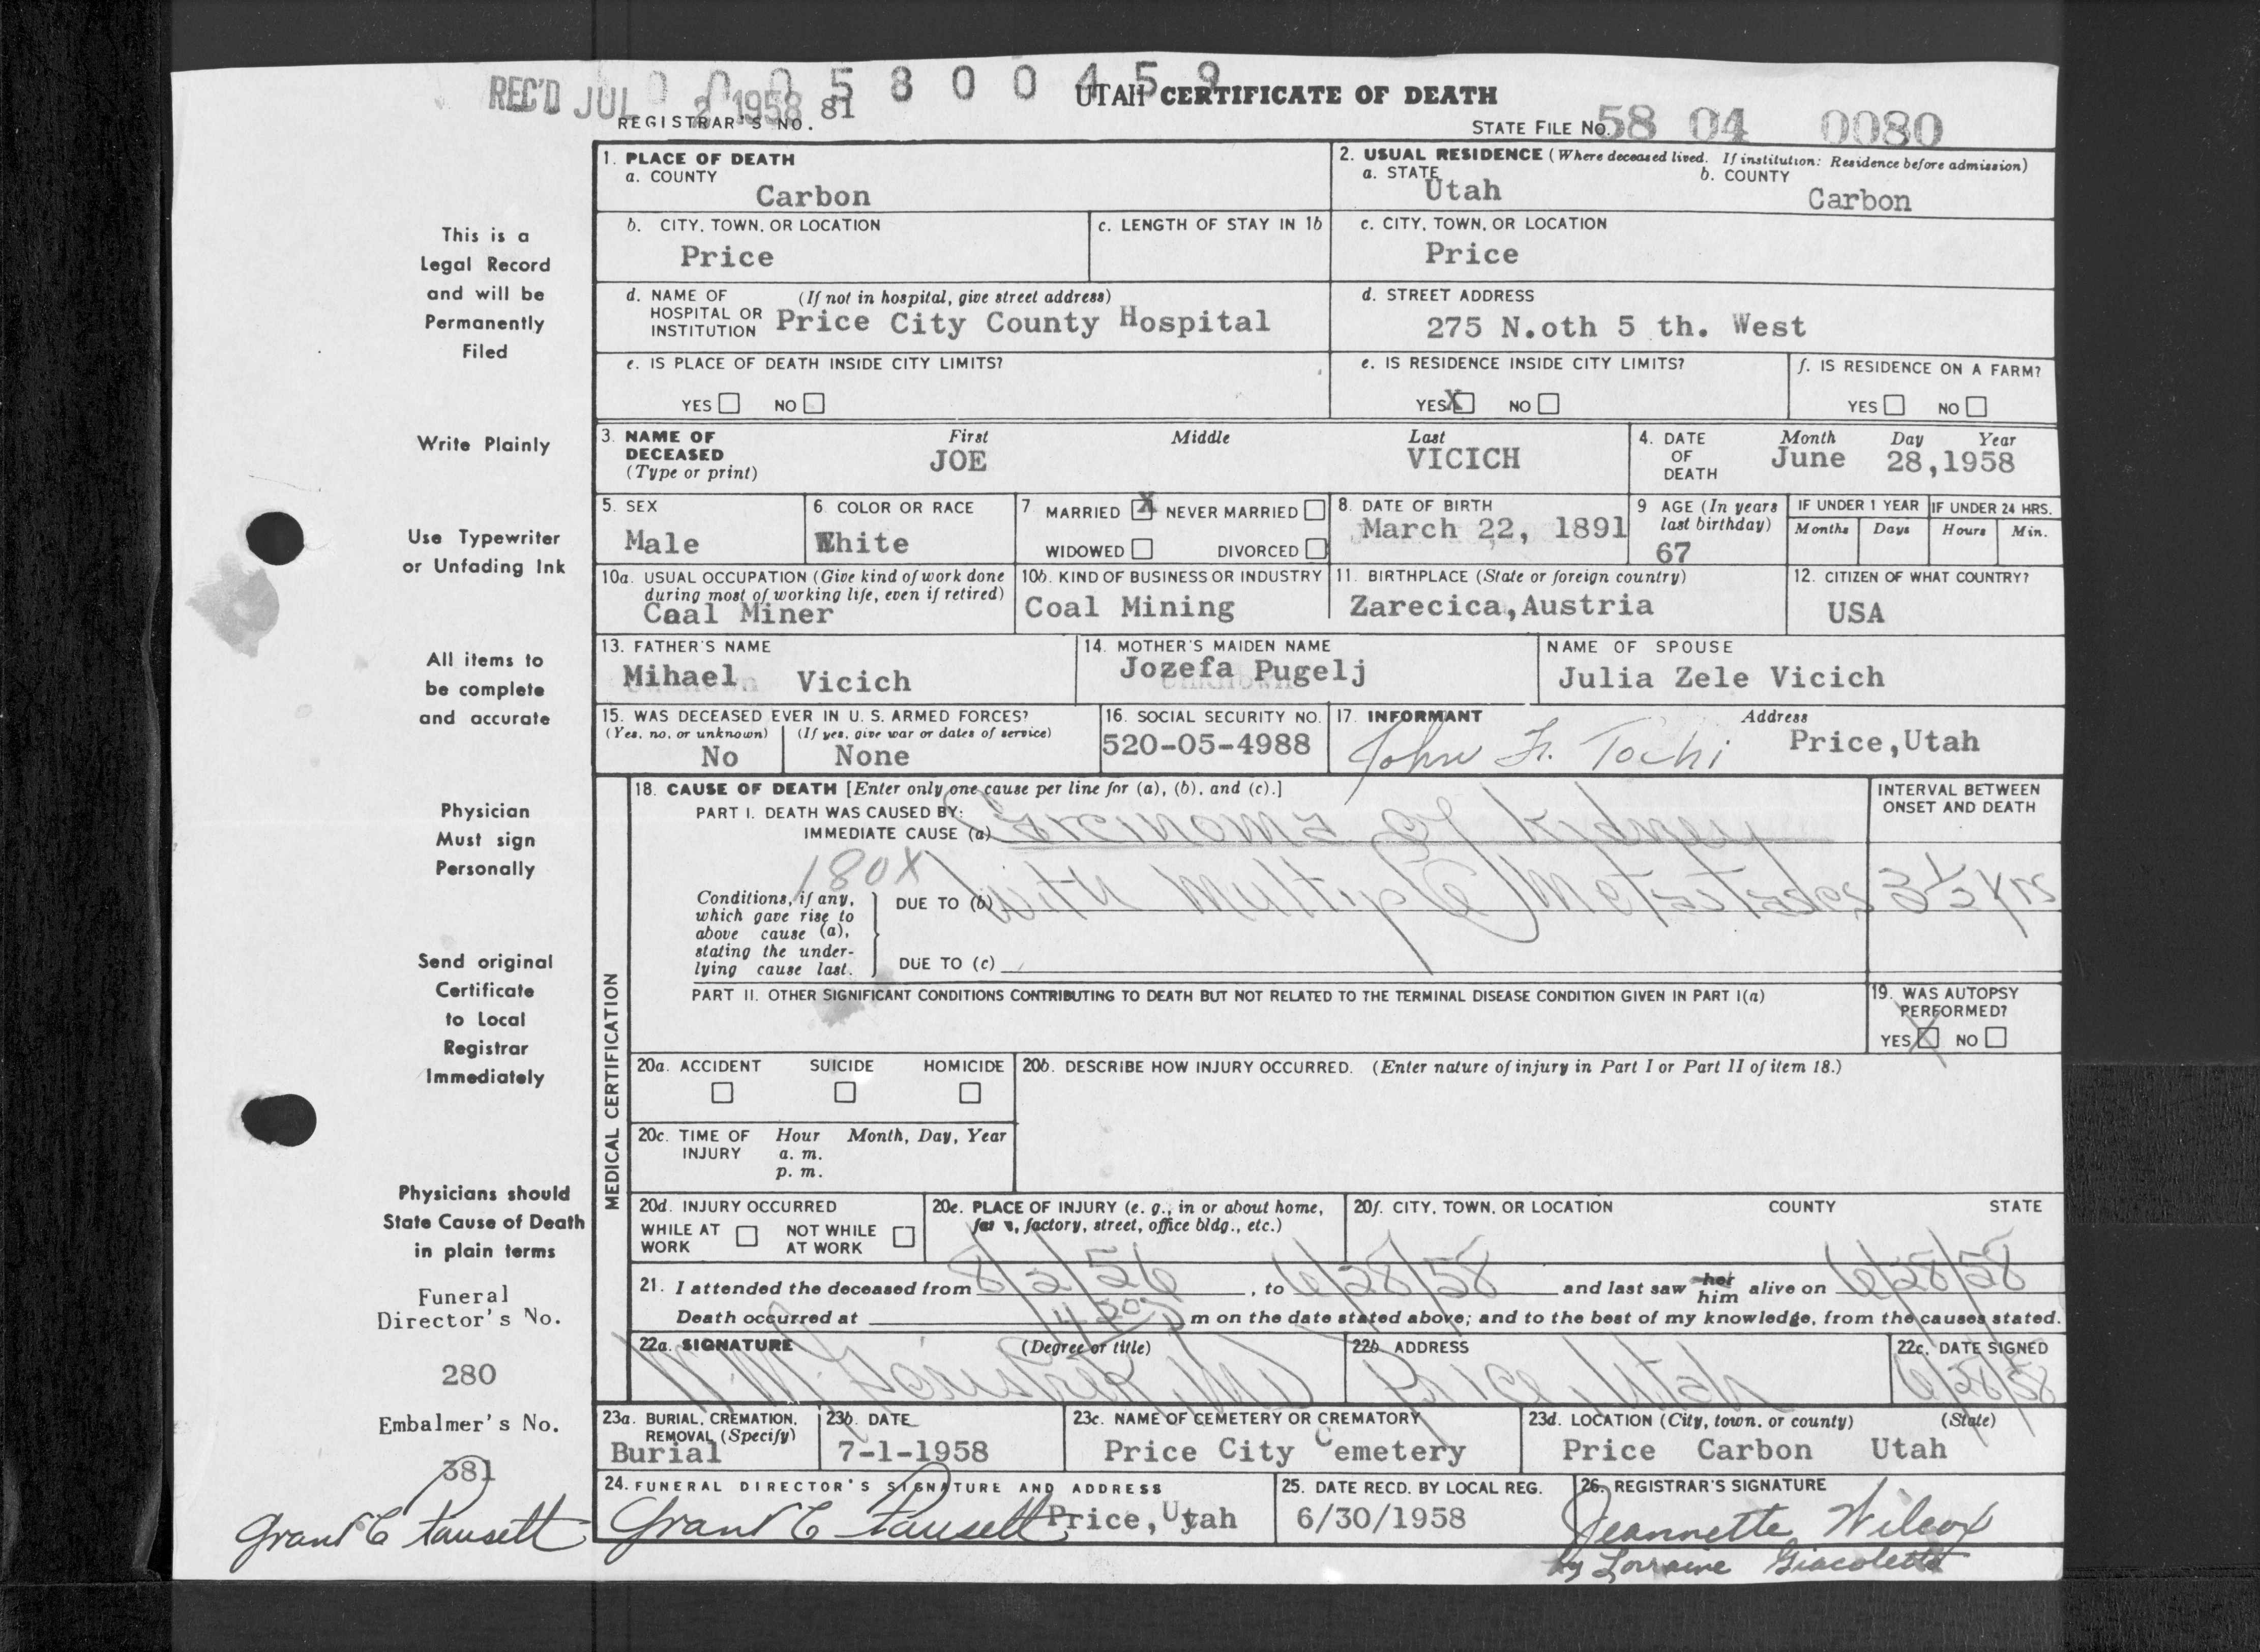 REC'D JUL 2 1958
0 0 0 5 8 0 0 4 5 9
UTAH CERTIFICATE OF DEATH
REGISTRAR'S NO. 81
STATE FILE NO. 58 04 0080
This is a
Legal Record
and will be
Permanently
Filed
Write Plainly
Use Typewriter
or Unfading Ink
All items to
be complete
and accurate
Physician
Must sign
Personally
Send original
Certificate
to Local
Registrar
Immediately
Physicians should
State Cause of Death
in plain terms
Funeral
Director's No.
280
Embalmer's No.
381
Grant C Fausett
1. PLACE OF DEATH
a. COUNTY
Carbon
2. USUAL RESIDENCE (Where deceased lived. If institution: Residence before admission)
a. STATE
Utah
b. COUNTY
Carbon
b. CITY, TOWN, OR LOCATION
Price
c. LENGTH OF STAY IN 1b
c. CITY, TOWN, OR LOCATION
Price
d. NAME OF (If not in hospital, give street address)
HOSPITAL OR
INSTITUTION Price City County Hospital
d. STREET ADDRESS
275 N.oth 5 th. West
e. IS PLACE OF DEATH INSIDE CITY LIMITS?
YES NO
e. IS RESIDENCE INSIDE CITY LIMITS?
YES X NO
f. IS RESIDENCE ON A FARM?
YES NO
3. NAME OF
DECEASED
(Type or print)
First Middle Last
JOE VICICH
4. DATE
OF
DEATH
Month Day Year
June 28,1958
5. SEX
Male
6 COLOR OR RACE
White
7 MARRIED X NEVER MARRIED
WIDOWED DIVORCED
8. DATE OF BIRTH
March 22, 1891
9 AGE (In years
last birthday)
67
IF UNDER 1 YEAR IF UNDER 24 HRS.
Months Days Hours Min.
10a. USUAL OCCUPATION (Give kind of work done
during most of working life, even if retired)
Coal Miner
10b. KIND OF BUSINESS OR INDUSTRY
Coal Mining
11. BIRTHPLACE (State or foreign country)
Zarecica,Austria
12. CITIZEN OF WHAT COUNTRY?
USA
13. FATHER'S NAME
Mihael Vicich
14. MOTHER'S MAIDEN NAME
Jozefa Pugelj
NAME OF SPOUSE
Julia Zele Vicich
15. WAS DECEASED EVER IN U. S. ARMED FORCES?
(Yes, no, or unknown) (If yes, give war or dates of service)
No None
16. SOCIAL SECURITY NO.
520-05-4988
17. INFORMANT Address
John F. Tochi Price,Utah
MEDICAL CERTIFICATION
18. CAUSE OF DEATH [Enter only one cause per line for (a), (b), and (c).]
PART I. DEATH WAS CAUSED BY:
IMMEDIATE CAUSE (a) Carcinoma of Kidney
180X
Conditions, if any,
which gave rise to
above cause (a),
stating the under-
lying cause last.
DUE TO (b) With Multiple Metastases
DUE TO (c)
INTERVAL BETWEEN
ONSET AND DEATH
3 1/2 yrs
PART II. OTHER SIGNIFICANT CONDITIONS CONTRIBUTING TO DEATH BUT NOT RELATED TO THE TERMINAL DISEASE CONDITION GIVEN IN PART I(a)
19. WAS AUTOPSY
PERFORMED?
YES X NO
20a. ACCIDENT SUICIDE HOMICIDE
20b. DESCRIBE HOW INJURY OCCURRED. (Enter nature of injury in Part I or Part II of item 18.)
20c. TIME OF Hour Month, Day, Year
INJURY a. m.
p. m.
20d. INJURY OCCURRED
WHILE AT NOT WHILE
WORK AT WORK
20e. PLACE OF INJURY (e. g., in or about home,
farm, factory, street, office bldg., etc.)
20f. CITY, TOWN, OR LOCATION COUNTY STATE
21. I attended the deceased from 8/2/56, to 6/28/58 and last saw her him alive on 6/28/58
Death occurred at m on the date stated above; and to the best of my knowledge, from the causes stated.
22a. SIGNATURE (Degree or title)
22b. ADDRESS
Price, Utah
22c. DATE SIGNED
6/28/58
23a. BURIAL, CREMATION,
REMOVAL (Specify)
Burial
23b. DATE
7-1-1958
23c. NAME OF CEMETERY OR CREMATORY
Price City Cemetery
23d. LOCATION (City, town, or county) (State)
Price Carbon Utah
24. FUNERAL DIRECTOR'S SIGNATURE AND ADDRESS
Grant C Fausett Price,Utah
25. DATE RECD. BY LOCAL REG.
6/30/1958
26. REGISTRAR'S SIGNATURE
Jeannette Wilcox
by Lorraine Giacoletto